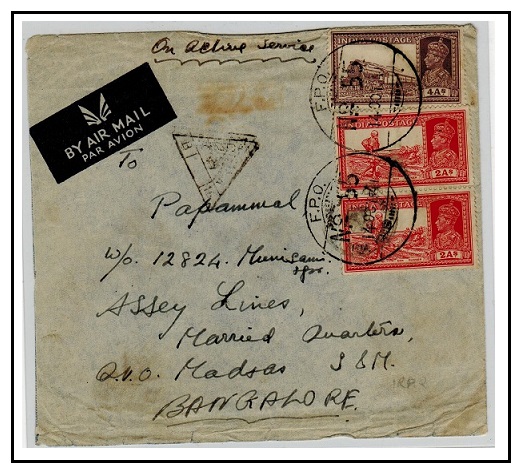 On Active Service
BY AIR MAIL
PAR AVION
INDIA POSTAGE
4As
F.P.O.
NO 55
INDIA POSTAGE
2As
F.P.O.
NO 55
INDIA POSTAGE
2As
To
Papammal
W/o. 12824 Munisami
Assey Lines,
Married Quarters,
Q.V.O. Madsas S & M.
BANGALORE.